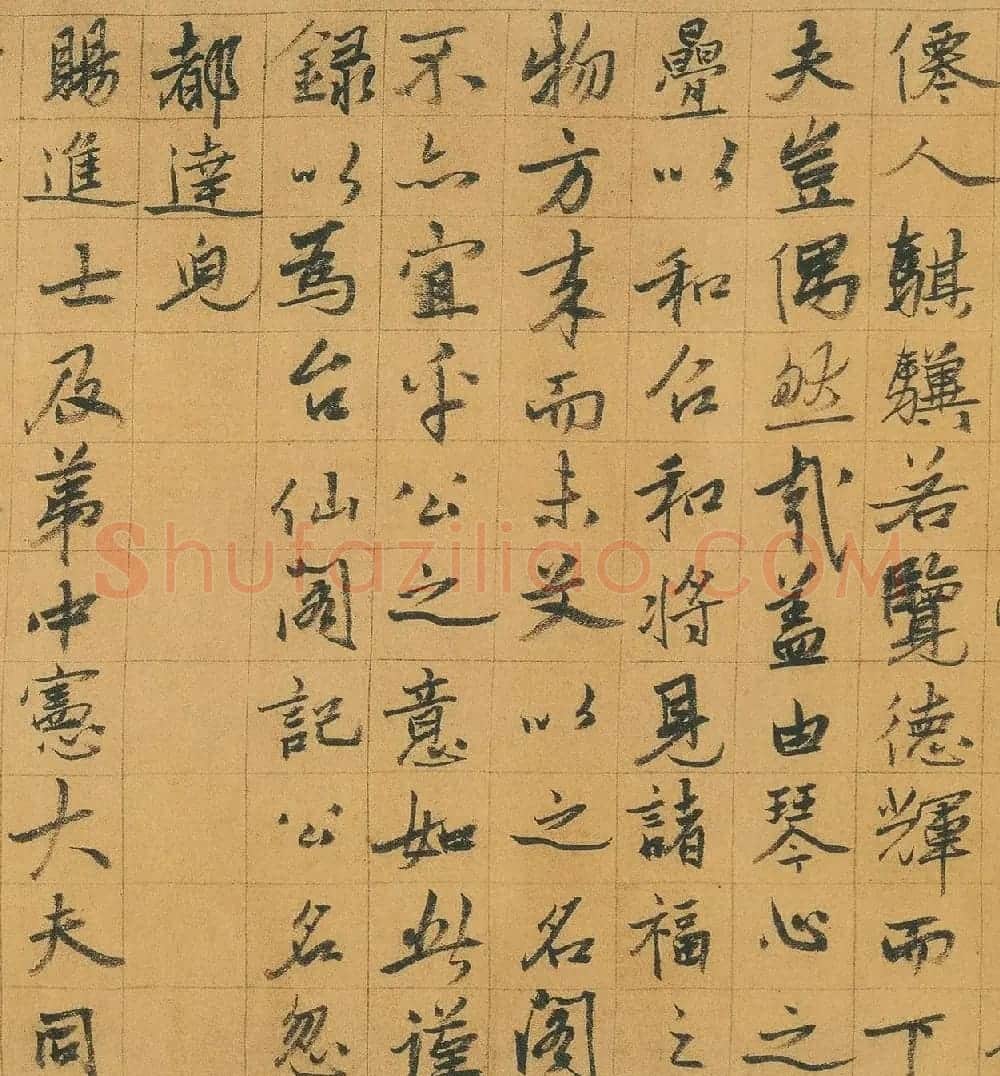 僊人騏驥若覽德輝而下
夫豈偶然哉盖由琴心之
疊以和合和將見諸福之
物方来而未艾以之名閣
不亦宜乎公之意如此謹
録以爲台仙閣記公名忽
都達兒
賜進士及第中憲大夫同
Shufaziliao.COM